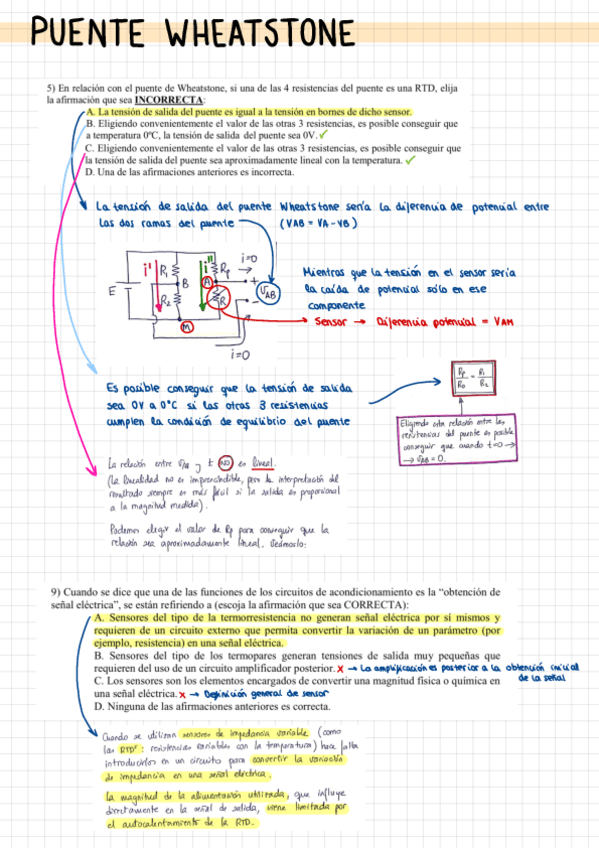 PUENTE WHEATSTONE
5) En relación con el puente de Wheatstone, si una de las 4 resistencias del puente es una RTD, elija
la afirmación que sea INCORRECTA:
A. La tensión de salida del puente es igual a la tensión en bornes de dicho sensor.
B. Eligiendo convenientemente el valor de las otras 3 resistencias, es posible conseguir que
a temperatura 0ºC, la tensión de salida del puente sea 0V. ✓
C. Eligiendo convenientemente el valor de las otras 3 resistencias, es posible conseguir que
la tensión de salida del puente sea aproximadamente lineal con la temperatura. ✓
D. Una de las afirmaciones anteriores es incorrecta.
La tensión de salida del puente Wheatstone sería la diferencia de potencial entre
las dos ramas del puente (VAB = VA - VB)
i=0
i' R1 i'' Rp
B A +
E R2 R VAB
M -
i=0
Mientras que la tensión en el sensor sería
la caída de potencial sólo en ese
componente
Sensor → Diferencia potencial = VAM
Es posible conseguir que la tensión de salida
sea 0V a 0°C si las otras 3 resistencias
cumplen la condición de equilibrio del puente
Rp/R0 = R1/R2
Eligiendo esta relación entre las
resistencias del puente es posible
conseguir que cuando t=0 →
→ VAB = 0.
La relación entre VAB y t NO es lineal.
(La linealidad no es imprescindible, pero la interpretación del
resultado siempre es más fácil si la salida es proporcional
a la magnitud medida).
Podemos elegir el valor de Rp para conseguir que la
relación sea aproximadamente lineal. Veámoslo:
9) Cuando se dice que una de las funciones de los circuitos de acondicionamiento es la “obtención de
señal eléctrica”, se están refiriendo a (escoja la afirmación que sea CORRECTA):
A. Sensores del tipo de la termorresistencia no generan señal eléctrica por sí mismos y
requieren de un circuito externo que permita convertir la variación de un parámetro (por
ejemplo, resistencia) en una señal eléctrica.
B. Sensores del tipo de los termopares generan tensiones de salida muy pequeñas que
requieren del uso de un circuito amplificador posterior. x → La amplificación es posterior a la obtención inicial
de la señal
C. Los sensores son los elementos encargados de convertir una magnitud física o química en
una señal eléctrica. x → Definición general de sensor
D. Ninguna de las afirmaciones anteriores es correcta.
Cuando se utilizan sensores de impedancia variable (como
las RTDs: resistencias variables con la temperatura) hace falta
introducirlos en un circuito para convertir la variación
de impedancia en una señal eléctrica.
La magnitud de la alimentación utilizada, que influye
directamente en la señal de salida, viene limitada por
el autocalentamiento de la RTD.